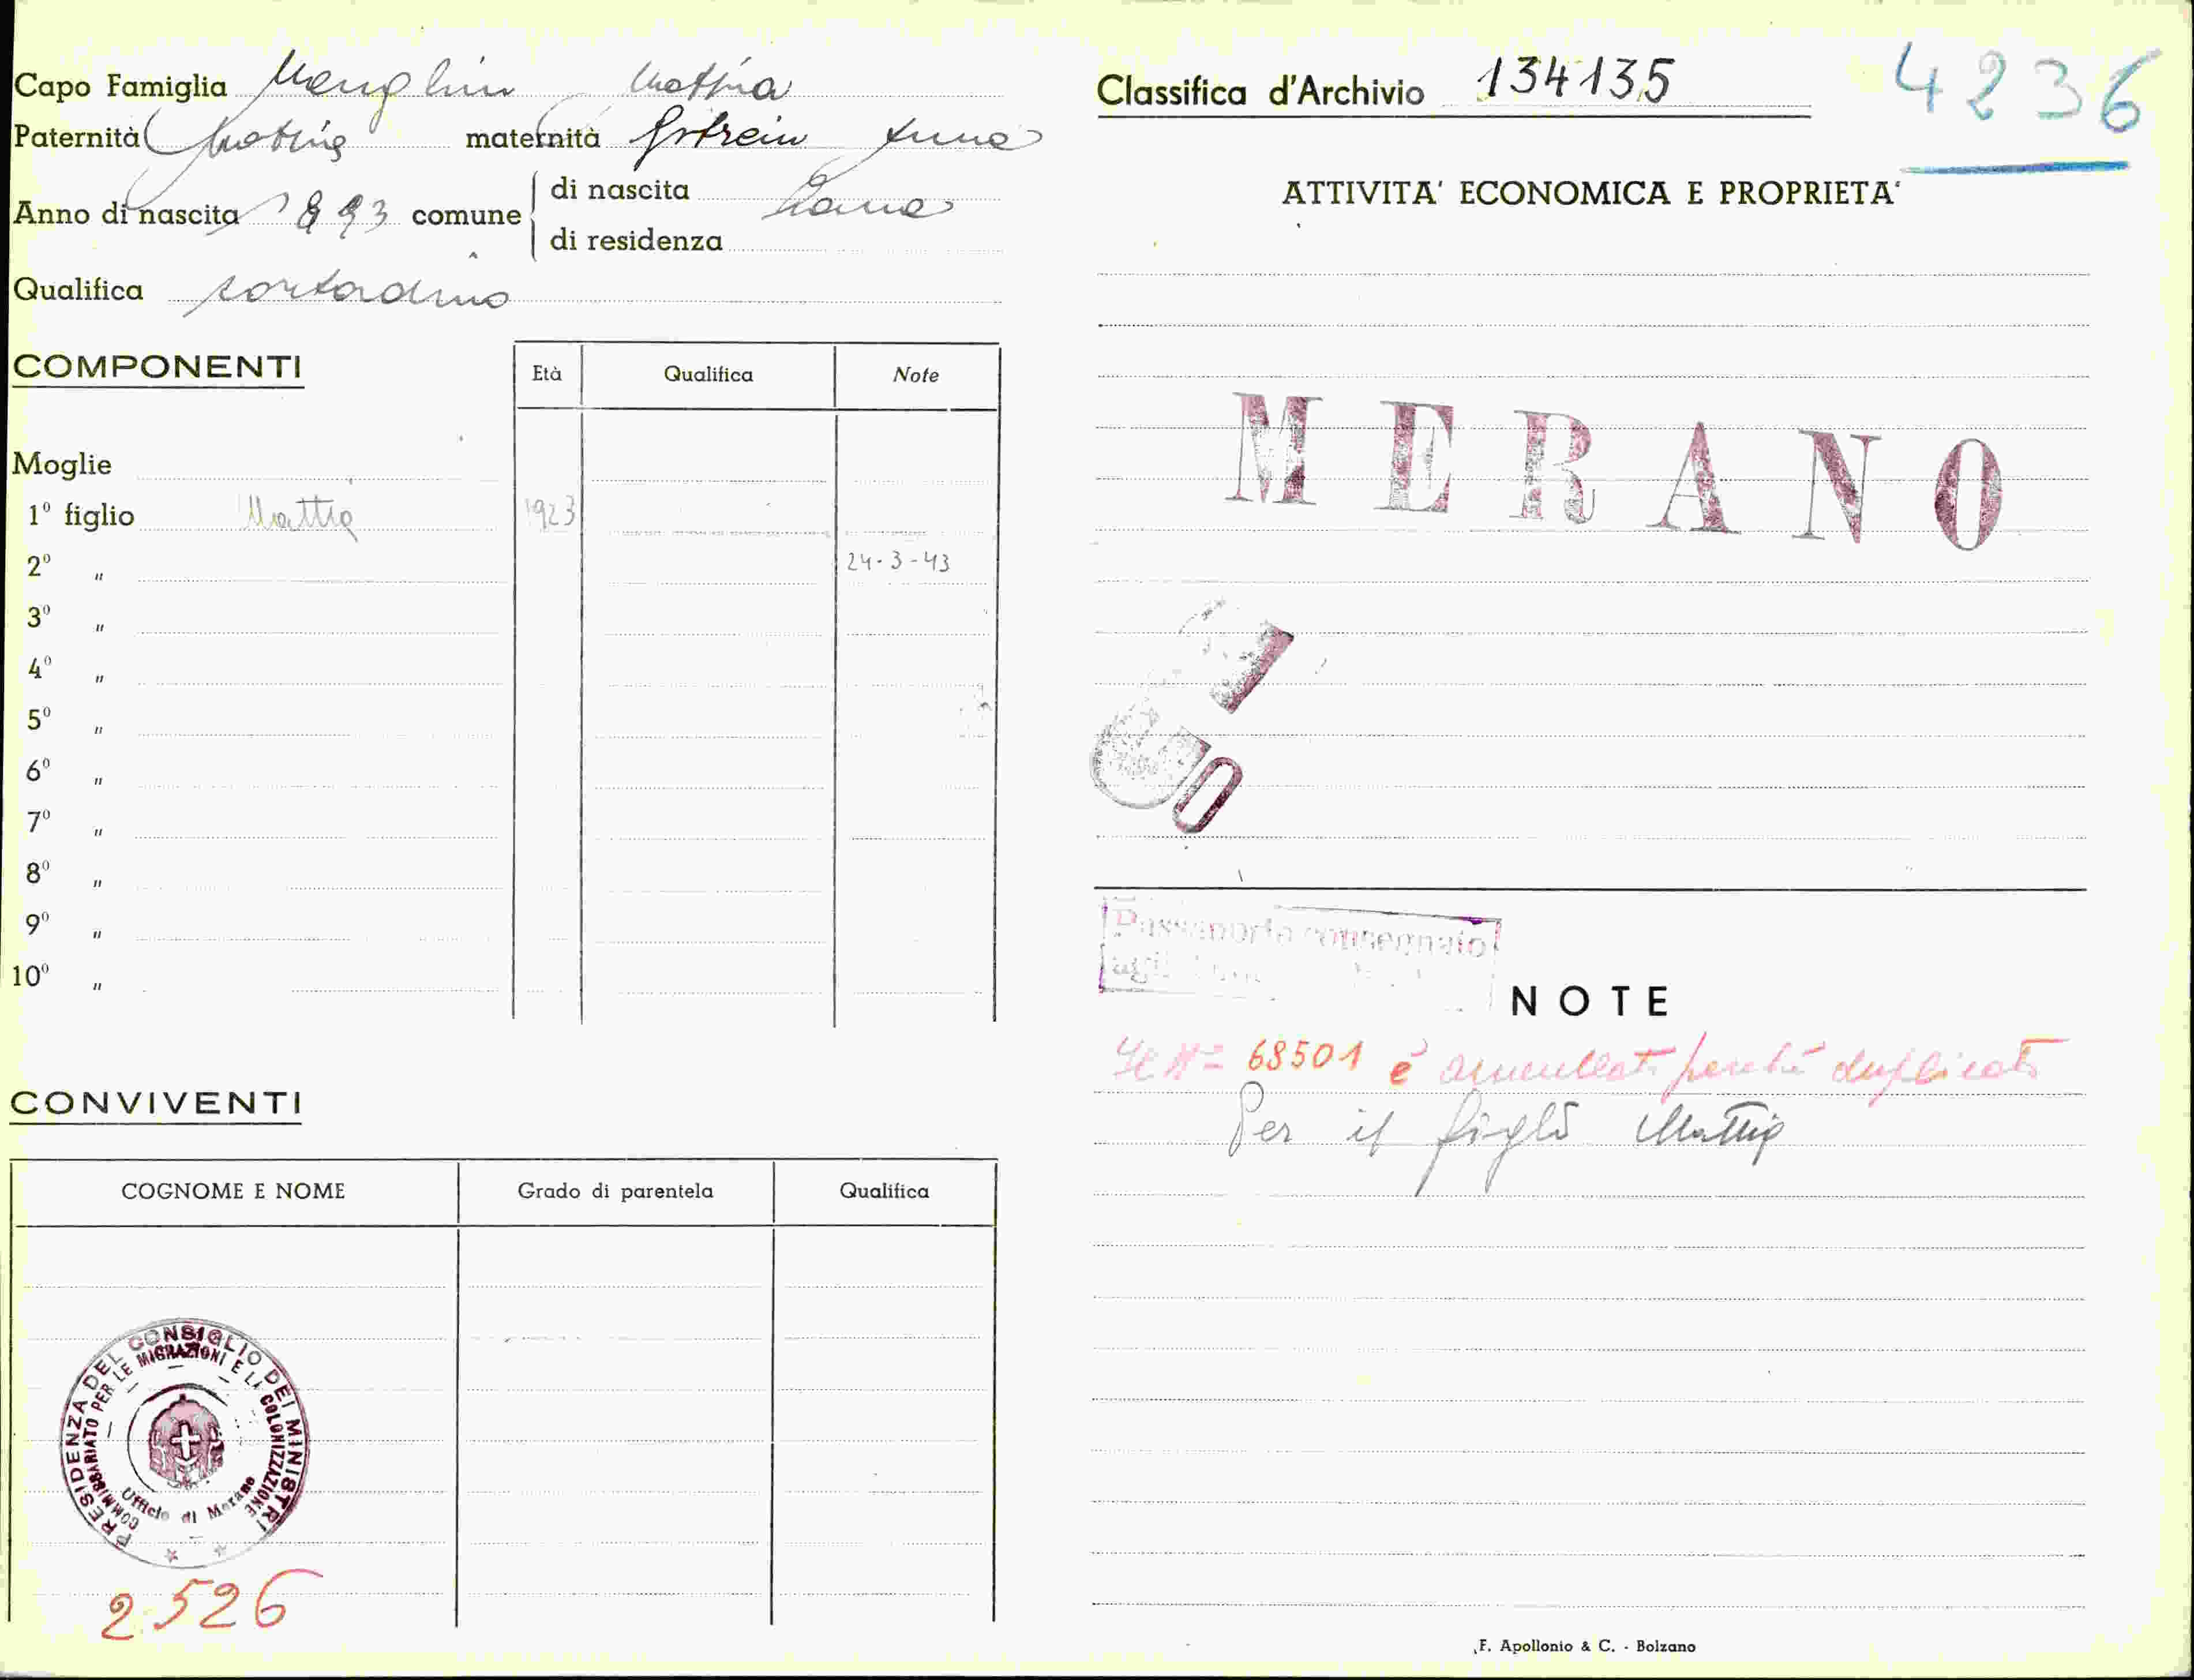 Capo Famiglia Menghin Mattia
Paternità Mattia maternità Anna
Anno di nascita 1893 comune di nascita Lana
di residenza
Qualifica contadino
COMPONENTI
Età Qualifica Note
Moglie
1º figlio Mattia 1923
2º " 24-3-43
3º "
4º "
5º "
6º "
7º "
8º "
9º "
10º "
CONVIVENTI
COGNOME E NOME Grado di parentela Qualifica
PRESIDENZA DEL CONSIGLIO DEI MINISTRI
COMMISSARIATO PER LE MIGRAZIONI E LA COLONIZZAZIONE
Ufficio di Merano
2526
Classifica d'Archivio 134135 4236
ATTIVITA' ECONOMICA E PROPRIETA'
MERANO
Passaporto consegnato
NOTE
Il Nº 68501 è annullato perché duplicato
Per il figlio Mattia
F. Apollonio & C. - Bolzano